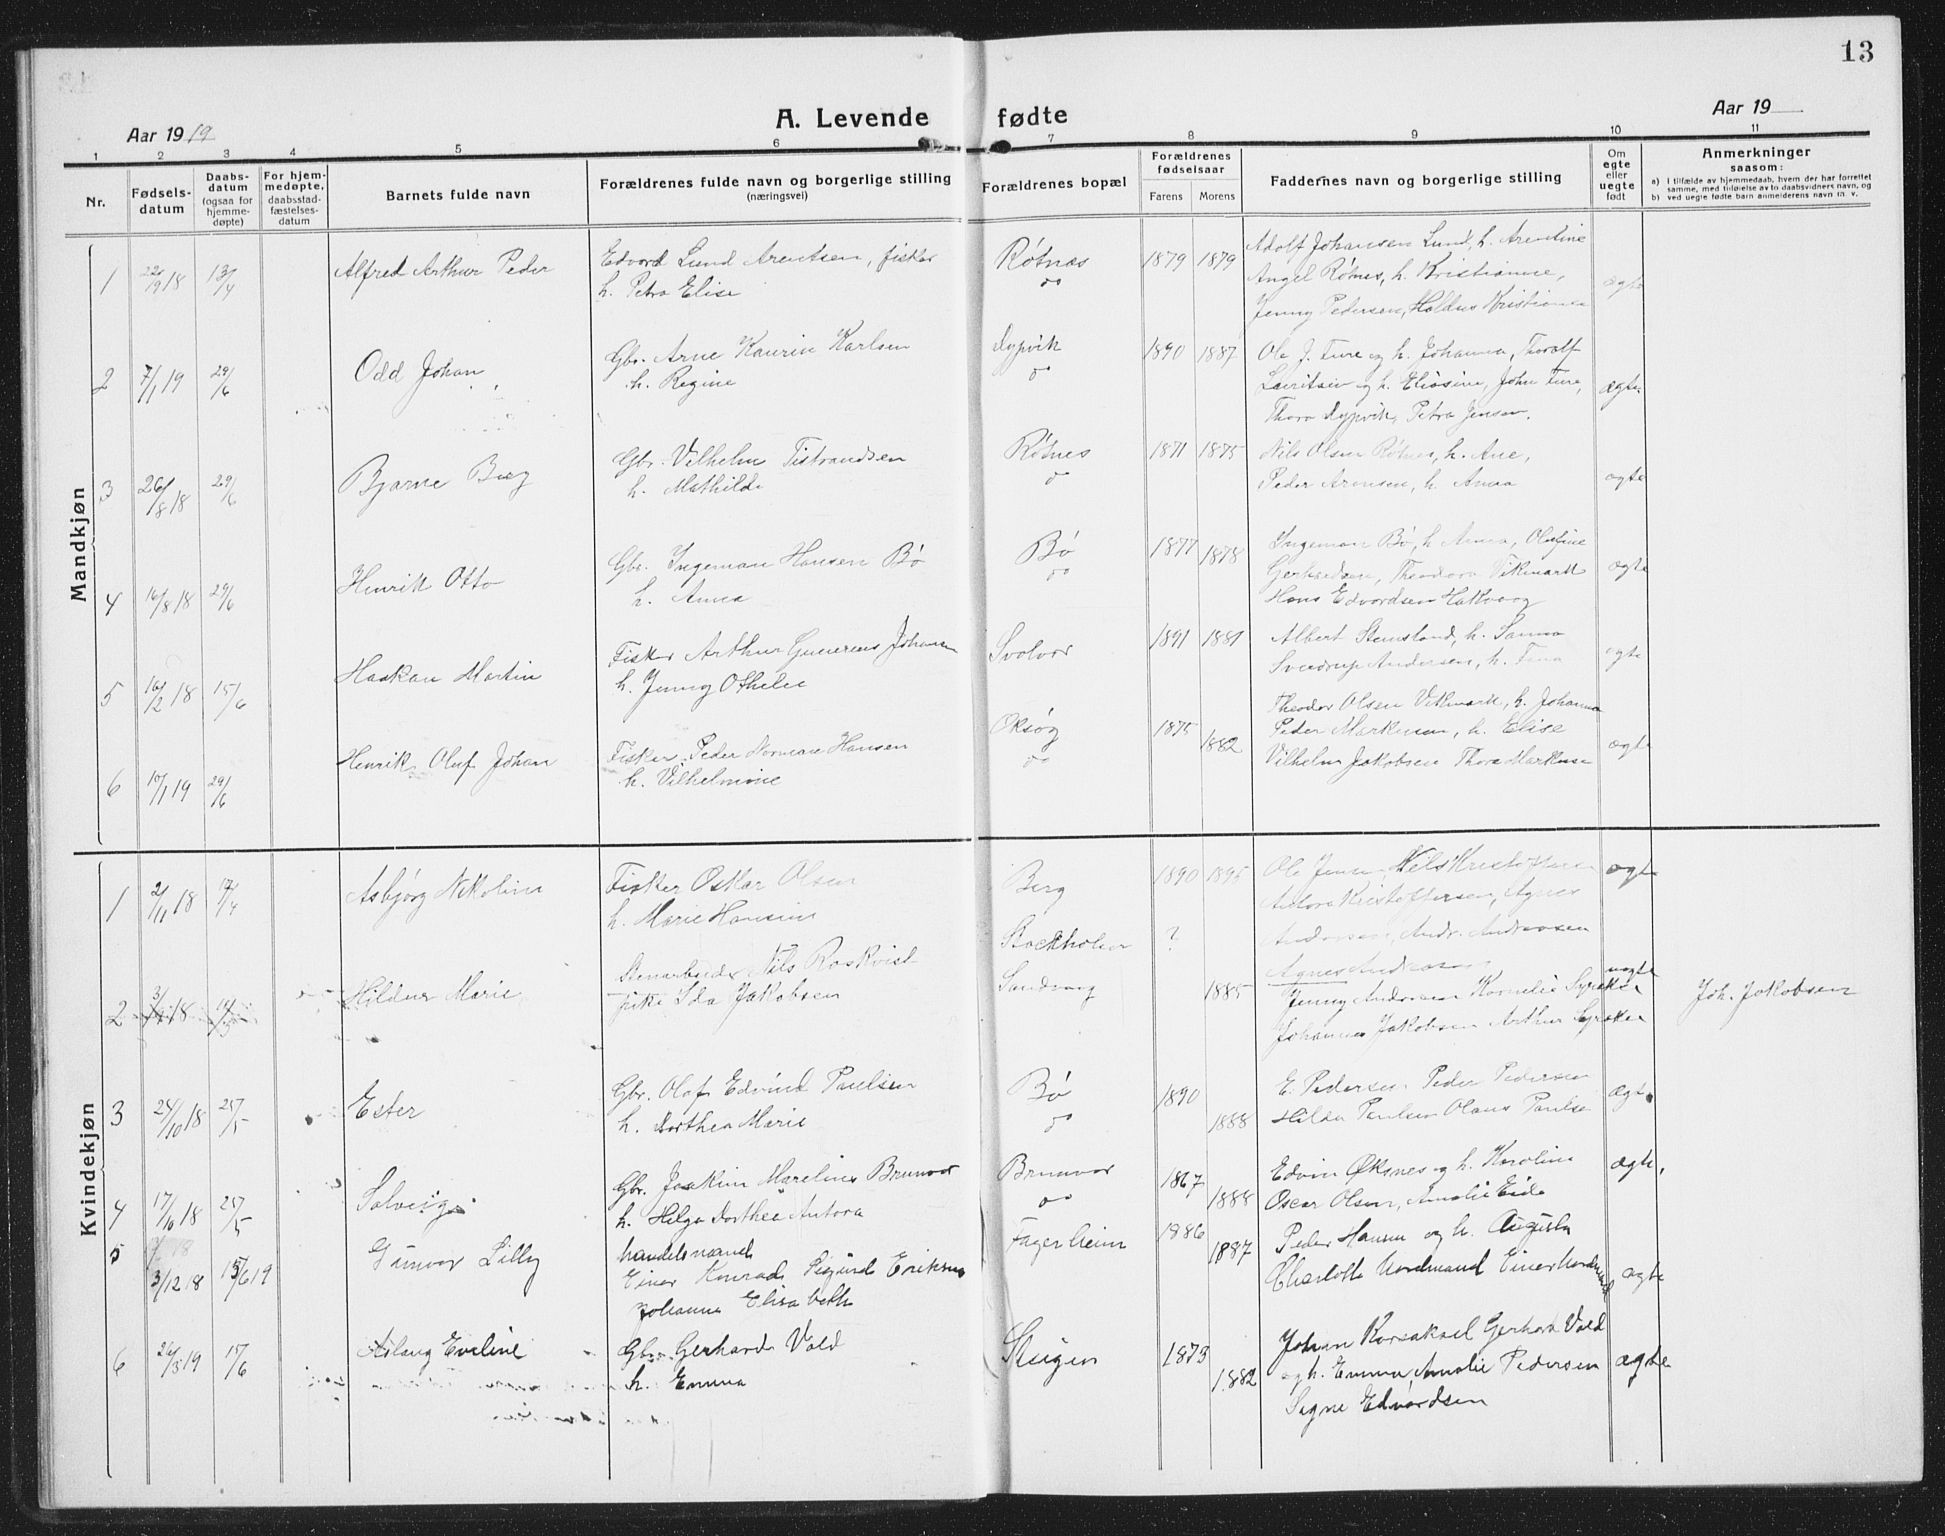 13
Aar 1919
A. Levende fødte
Aar 19
1 2 3 4 5 6 7 8 9 10 11
Nr.
Fødsels-
datum
Daabs-
datum
(ogsaa for
hjemme-
døpte)
For hjem-
medøpte,
daabsstad-
fæstelses-
datum
Barnets fulde navn
Forældrenes fulde navn og borgerlige stilling
(næringsvei)
Forældrenes bopæl
Forældrenes
fødselsaar
Farens Morens
Faddernes navn og borgerlige stilling
Om
egte
eller
uegte
født
Anmerkninger
saasom:
a) i tilfælde av hjemmedaab, hvem der har forrettet
samme, med tilføielse av to daabsvidners navn, og
b) ved uegte fødte barn anmelderens navn m. v.
Mandkjøn
1 22/9 18 13/4 Alfred Arthur Peder
Edvard Lund Arentsen, fisker
h. Petra Elise
Røtnes
do
1879 1879
Adolf Johansen Lund, h. Arentine
Angel Røtnes, h. Kristianne,
Jenny Pedersen, Haldus Kristiansen
ægte
2 7/1 19 29/6 Odd Johan
Gbr. Arne Kaurin Karlsen
h. Regine
Dypvik
do
1890 1887
Ole J. Ture og h. Johanna, Thoralf
Lauritsen og h. Elisine, John Ture,
Thora Dypvik, Petra Jensen.
ægte
3 26/8 18 29/6 Bjarne Berg
Gbr. Vilhelm Tistrandsen
h. Mathilde
Røtnes
do
1871 1875
Nils Olsen Røtnes, h. Ane,
Peder Aronsen, h. Anna
ægte
4 16/8 18 29/6 Henrik Otto
Gbr. Ingeman Hansen Bø
h. Anna
Bø
do
1877 1878
Ingeman Bø, h. Anna, Olufine
Gerhardsen, Theodora Vikmark
Hans Edvardsen Hakvaag
ægte
5 16/2 18 15/6 Haakan Martin
Fisker Arthur Gunerius Johansen
h. Jenny Othelie
Svolvær
1891 1881
Albert Stemland, h. Sanna
Sverdrup Andersen, h. Tina
ægte
6 10/1 19 29/6 Henrik Oluf Johan
Fisker Peder Norman Hansen
h. Vilhelmine
Oksøg
do
1875 1882
Theodor Olsen Vikmark, h. Johanna
Peder Markusen, h. Elise
Vilhelm Jakobsen Thora Markuse
ægte
Kvindekjøn
1 2/11 18 17/4 Asbjørg Nikoline
Fisker Oskar Olsen
h. Marie Hansine
Berg
1890 1895
Ole Jensen, Nils Kristoffersen
Antora Kristoffersen, Agnes
Andersen, Andr. Andreasen
Agnes Andreasen
ægte
2 3/1 18 Hildur Marie
Stenarbeider Nils Roskvist
pike Ida Jakobsen
Stockholm
Sandvaag
? 1885
Jenny Andersen Kornelie Syraker
Johannes Jakobsen Arthur Syraker
uægte
Joh. Jakobsen
3 25/10 18 25/5 Ester
Gbr. Olaf Edvind Paulsen
h. Dorthea Marie
Bø
do
1890 1888
E. Pedersen Peder Pedersen
Hilda Paulsen Olaus Paulse
ægte
4 17/6 18 25/5 Solveig
Gbr. Joakim Marelius Brunvær
h. Helga Dorthea Antora
Brunvær
do
1867 1888
Edvin Øksnes og h. Karoline
Oscar Olsen, Amalie Eide
ægte.
5 3/12 18 15/6 19 Gunvor Lilly
handelsmand
Einar Konrad Sigurd Eriksen
Johanna Elisabeth
Fagerheim
1886 1887
Peder Hansen og h. Augusta
Charlotte Nordmand Einer Nordmand
ægte
6 26/3 19 15/6 Aslaug Eveline
Gbr. Gerhard Vold
h. Emma
Steigen
1873 1882
Johan Korsaksel Gerhard Vold
og h. Emma, Amalie Pedersen
Signe Edvardsen
ægte